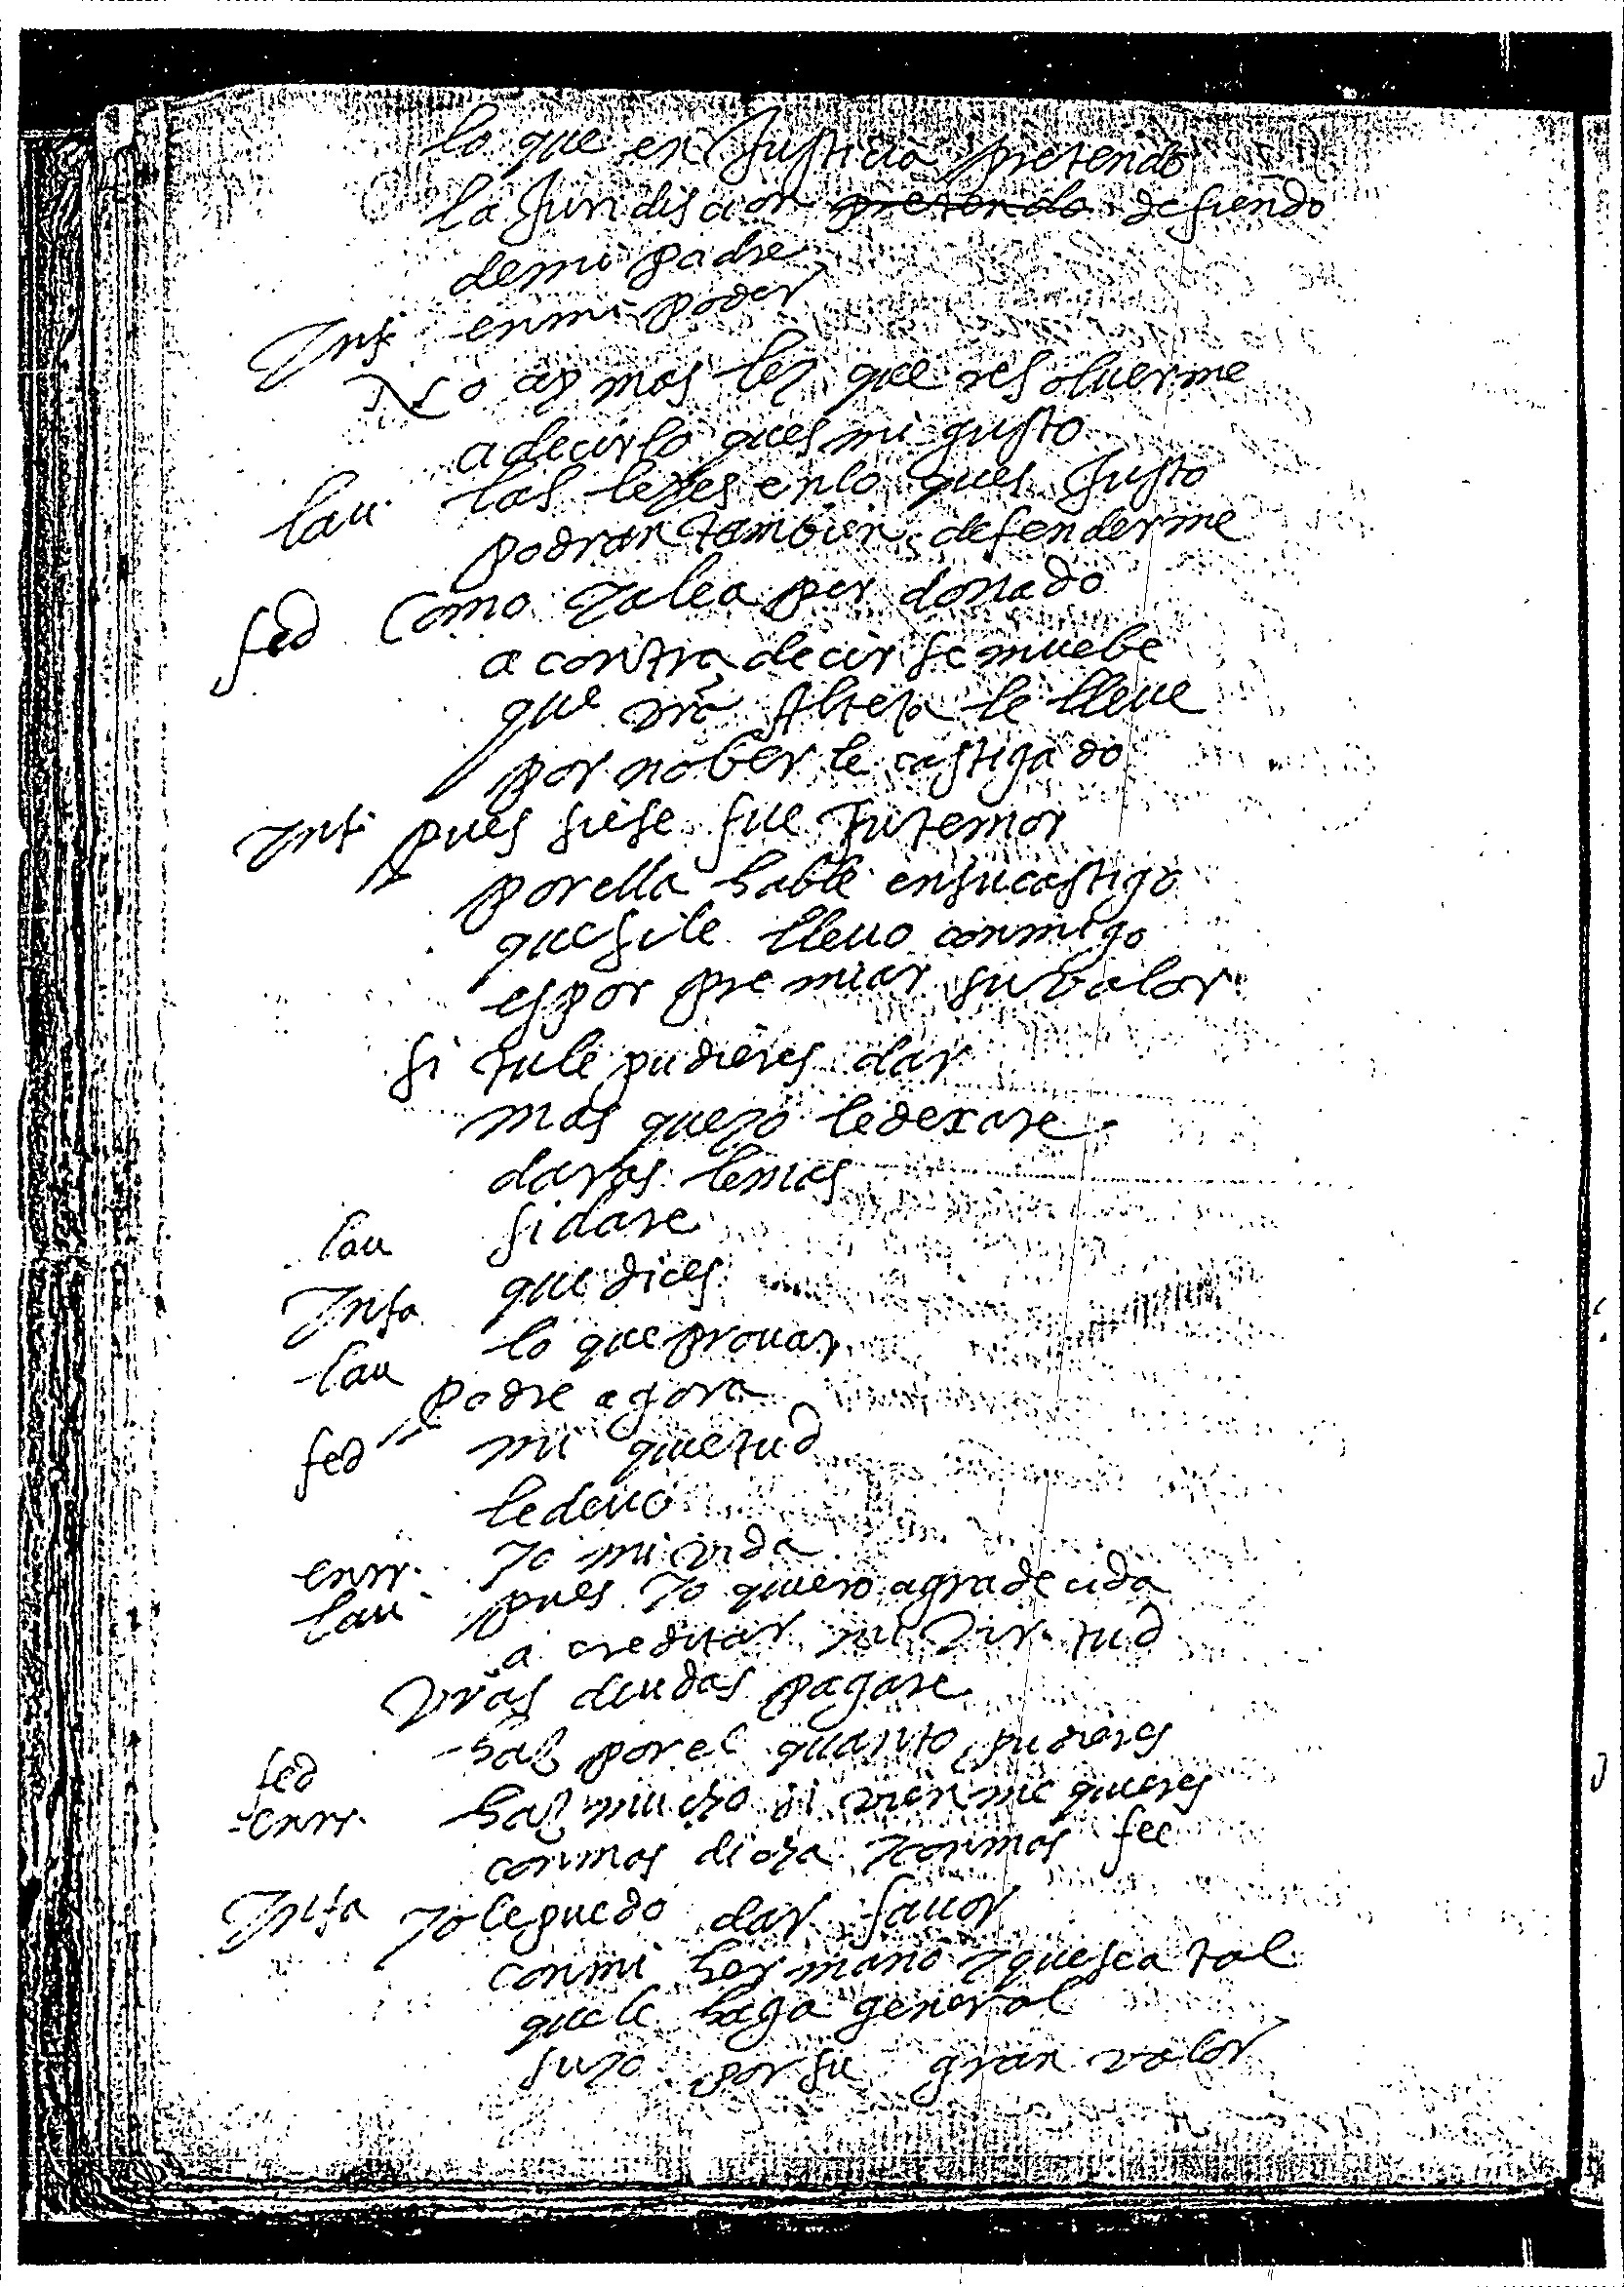 lo que en Justicia pretendo
la Juridiscion pretendo defiendo
demi padre
Inf enmi poder
No ay mas ley que resoluerme
adecirlo ques mi gusto
lau las leyes enlo ques Justo
podran tambien defenderme
fed Como ya lea perdonado
a contradecir se muebe
que vrã Alteza le lleue
por no ber le castigado
Inf pues siese fue tutemor
porella hable ensucastigo
quesile lleuo conmigo
espor premiar su balor
si tule pudieres dar
mas queyo ledexare
daras lemas
lau si dare
Infa que dices
lau lo que prouar
podre agora
fed mi quietud
ledeuo
enrr. yo mi vida
lau pues yo quiero agradecida
a creditar mi virtud
vrãs deudas pagare
fed haz por el quanto pudieres
enrr. haz mucho si vien me quieres
conmas dicha yconmas fee
Infa yolepuedo dar fauor
conmi hermano yquesea tal
quele haga general
suyo por su gran valor